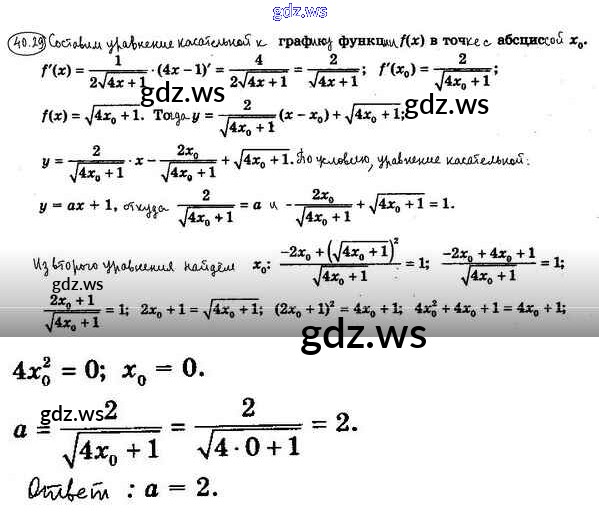 gdz.ws
40.29 Составим уравнение касательной к графику функции f(x) в точке с абсциссой x₀.
f'(x) = 1/(2√(4x + 1)) · (4x − 1)' = 4/(2√(4x + 1)) = 2/√(4x + 1); f'(x₀) = 2/√(4x₀ + 1);
gdz.ws gdz.ws
f(x) = √(4x₀ + 1). Тогда y = 2/√(4x₀ + 1) (x − x₀) + √(4x₀ + 1);
y = 2/√(4x₀ + 1) · x − 2x₀/√(4x₀ + 1) + √(4x₀ + 1). По условию, уравнение касательной:
y = ax + 1, откуда 2/√(4x₀ + 1) = a и −2x₀/√(4x₀ + 1) + √(4x₀ + 1) = 1.
Из второго уравнения найдём x₀: (−2x₀ + (√(4x₀ + 1))²)/√(4x₀ + 1) = 1; (−2x₀ + 4x₀ + 1)/√(4x₀ + 1) = 1;
gdz.ws
(2x₀ + 1)/√(4x₀ + 1) = 1; 2x₀ + 1 = √(4x₀ + 1); (2x₀ + 1)² = 4x₀ + 1; 4x₀² + 4x₀ + 1 = 4x₀ + 1;
gdz.ws
4x₀² = 0; x₀ = 0.
gdz.ws
a = 2/√(4x₀ + 1) = 2/√(4 · 0 + 1) = 2.
Ответ : a = 2.
gdz.ws